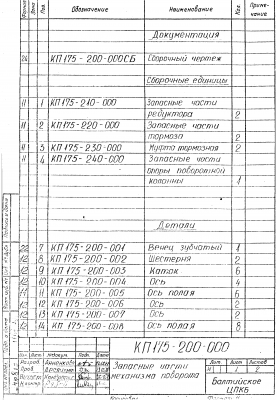 Формат Зона Поз. Обозначение Наименование Кол. Приме-
чание
Документация
24 КП175-200-000СБ Сборочный чертеж
Сборочные единицы
11 1 КП175-210-000 Запасные части
редуктора 2
11 2 КП175-220-000 Запасные части
тормоза 2
11 3 КП175-230-000 Муфта тормозная 2
11 4 КП175-240-000 Запасные части
опоры поворотной
колонны 1
Детали
22 7 КП175-200-001 Венец зубчатый 1
12 8 КП175-200-002 Шестерня 2
12 9 КП175-200-003 Каток 6
12 10 КП175-200-004 Ось 4
11 КП175-200-005 Ось полая 6
12 12 КП175-200-006 Ось 2
12 13 КП175-200-007 Ось 2
12 14 КП175-200-008 Ось полая 8
КП175-200-000
Изм. Лист №докум. Подп. Дата
Разраб.
Пров.
Н.контр.
Запасные части
механизма поворота
Лит. Лист Листов
1 2
Балтийское
ЦПКБ